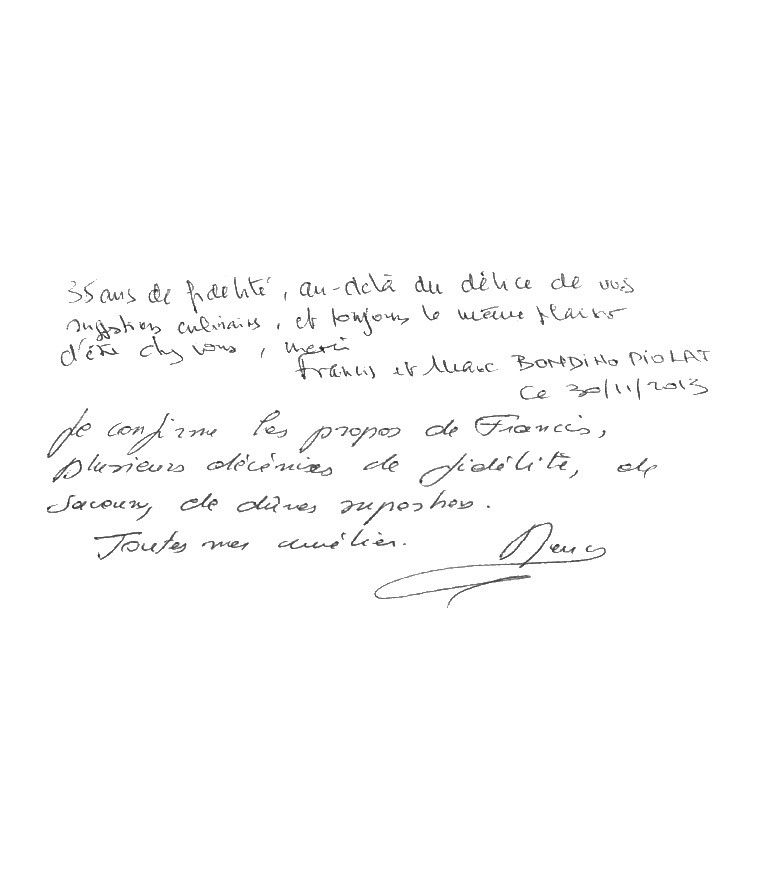 35 ans de fidélité, au-delà du délice de vos
suggestions culinaires, et toujours le même plaisir
d'être chez vous, merci
Francis et Marc BONDINO PIOLAT
Ce 30/11/2013
Je confirme les propos de Francis,
plusieurs décénies de fidélité, de
saveurs, de
Toutes mes amitiés.